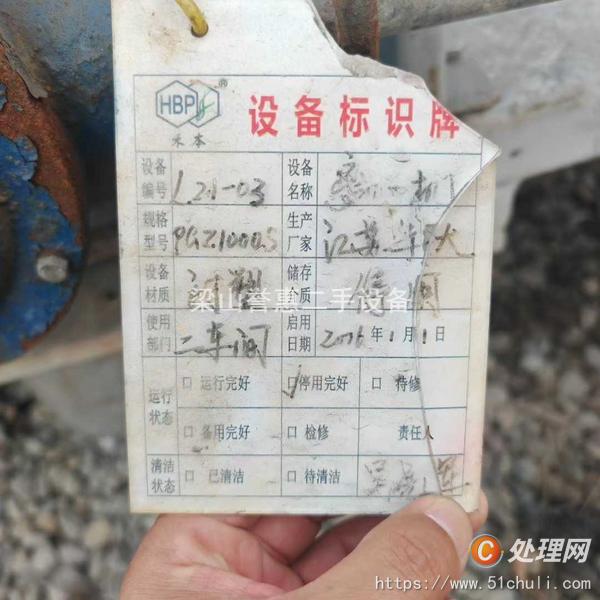 HBP ®
禾本
设备标识牌
设备编号 L21-03 设备名称 机
规格型号 PGZ1000S 生产厂家 江苏
设备材质 衬塑 储存介质
使用部门 二车间 启用日期 2016年1月1日
运行状态 □ 运行完好 □ 停用完好 □ 待修
□ 备用完好 □ 检修 责任人
清洁状态 □ 已清洁 □ 待清洁
梁山誉惠二手设备
C 处理网
https://www.51chuli.com